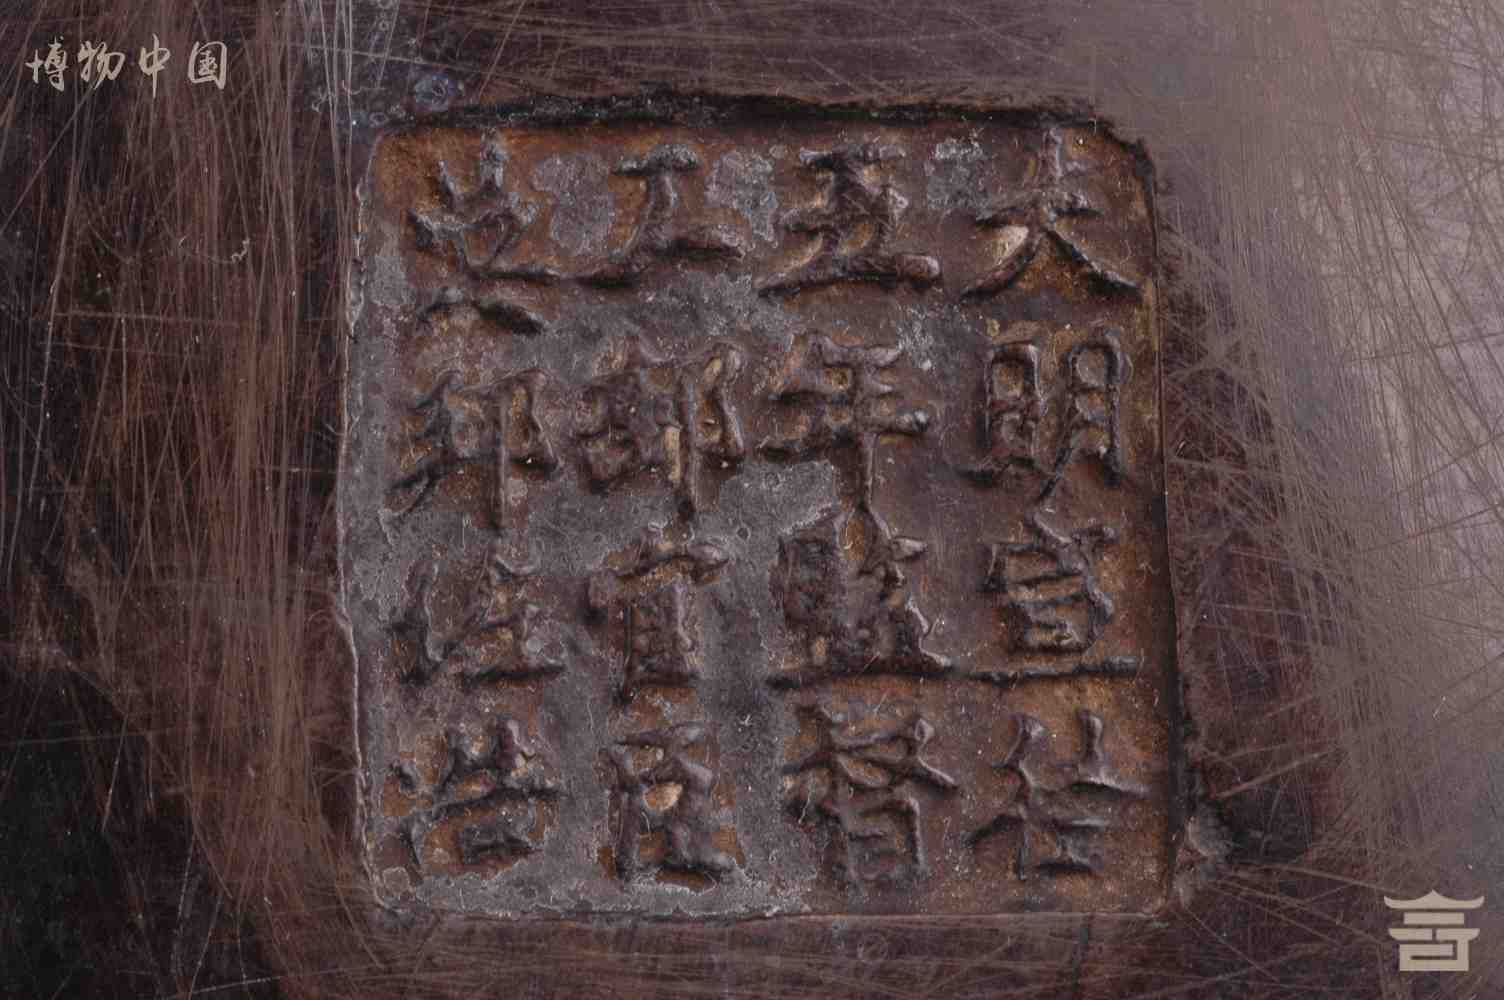 博物中国
大明宣德
五年監督
工部官臣
吳邦佐造